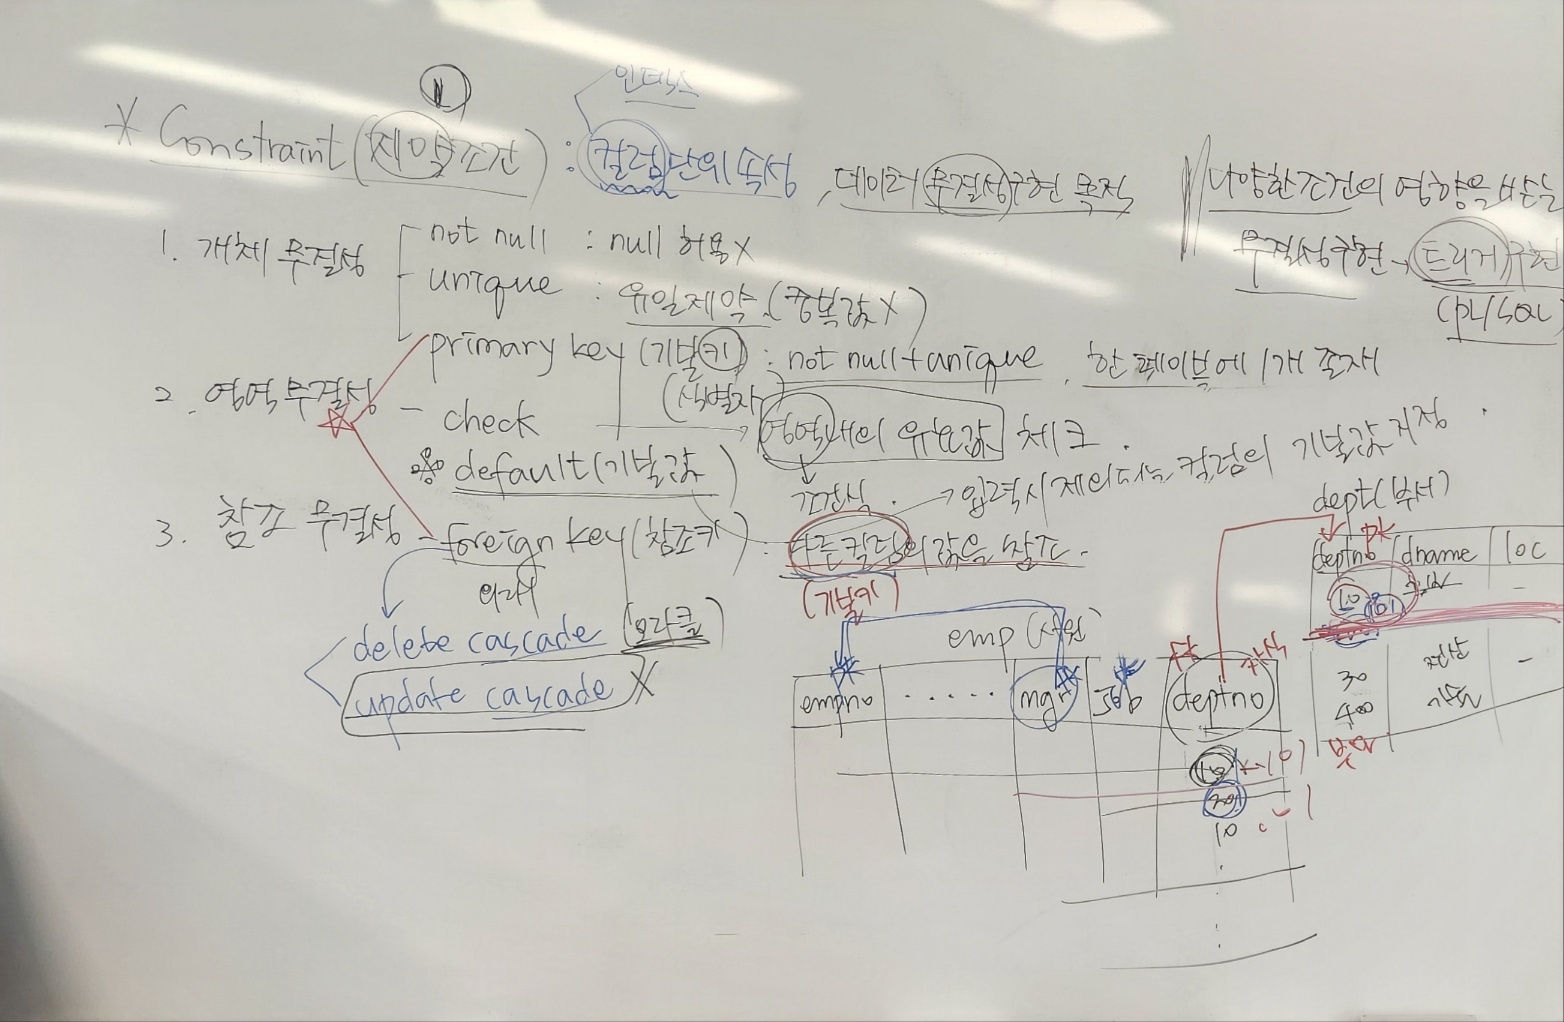 인덱스
* Constraint (제약조건) : 컬럼단위 속성, 데이터 무결성 구현 목적
다양한 조건의 영향을 받는
무결성 구현 → 트리거 구현
(PL/SQL)
1. 개체 무결성
not null : null 허용 X
unique : 유일제약 (중복값 X)
primary key (기본키) : not null + unique, 한 테이블에 1개 존재
(식별자)
2. 영역 무결성 - check
영역내의 유효값 체크.
※ default (기본값)
→ 입력시 제외되는 컬럼의 기본값 지정
3. 참조 무결성 - foreign key (참조키) : 다른 컬럼의 값을 참조.
(기본키)
delete cascade (오라클)
update cascade X
emp (사원)
empno ····· mgr job deptno
자식
10
20
10
dept (부서)
pk
deptno dname loc
10 -
30 전산 -
400